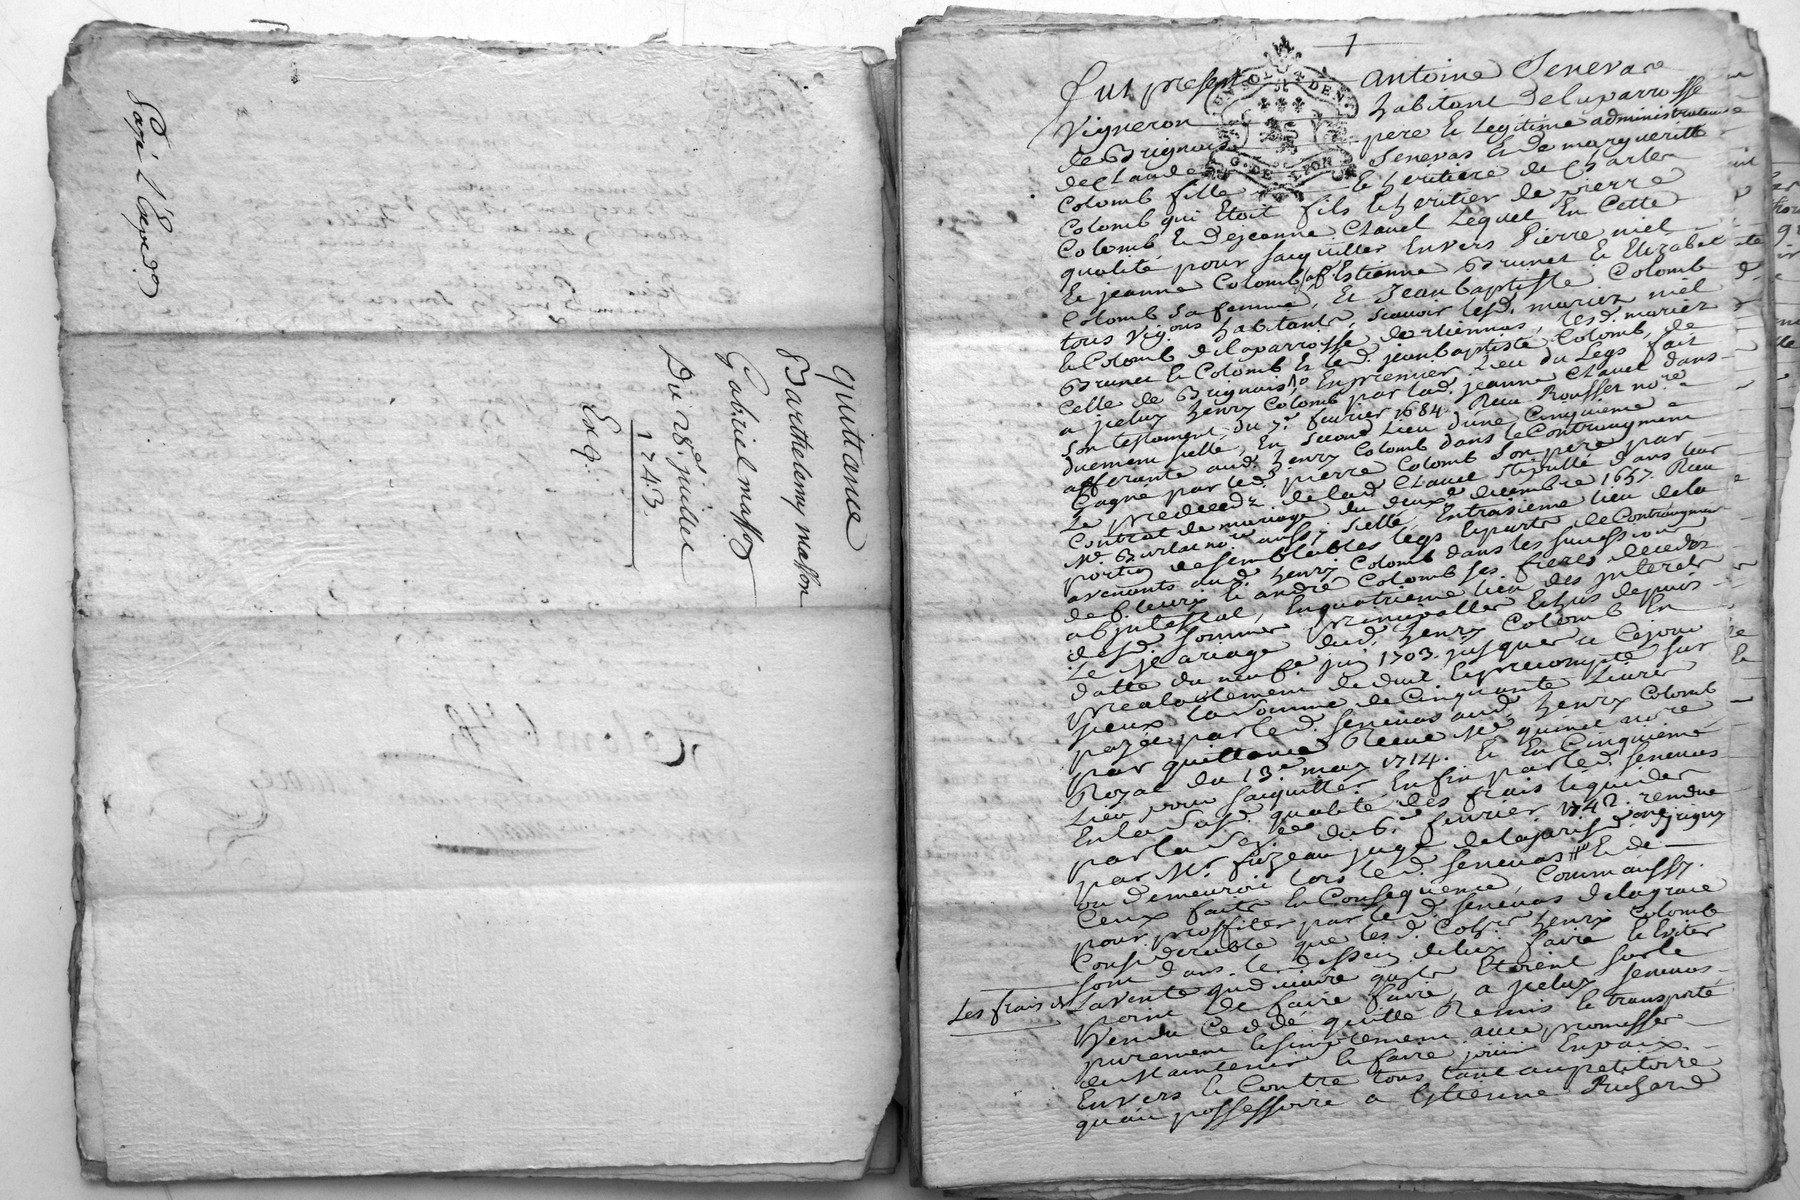 quittance
Barthelemy masson
Gabriel masson
Du 28e juillet
1743.
Exq.
Payé
1
Fut present Antoine Senevas
Vigneron habitant de la parroisse
de Brignais pere et legitime administrateur
de Claude Senevas et de margueritte
Colomb fille et heritiere de Charles
Colomb qui Etoit fils et heritier de pierre
Colomb et de jeanne Clavel Lequel En Cette
qualité pour sacquitter Envers Pierre niel
Et jeanne Colomb Estienne Brunet et Elizabet
Colomb sa femme, et Jean baptiste Colomb
tous Vigons habitants, scavoir lesd. mariez niel
et Colomb de la parroisse lesd. mariez
Brunet et Colomb Et led. jean baptiste Colomb, de
Celle de Brignais En premier Lieu du Legs fait
a henry Colomb par lad. jeanne Clavel dans
Son testament du 7e fevrier 1684 Recu Rousset nore
duement scellé, En second Lieu d'une Cinquieme
afferante aud. henry Colomb dans le Contraugment
Gagné par led. pierre Colomb son pere par
Le predecedz de lad Clavel stipullé dans leur
Contrat de mariage du deuxe decembre 1657. Recu
Me nore aussy scellé, En troisieme lieu de la
portion de semblables legs et parts de Contraugment
avenants aud. henry Colomb dans les successions
de fleury et andré Colomb ses freres decedez
ab jntestat, En quatrieme lieu des jnterets
desd. sommes principalles Echus depuis
Le mariage dud. henry Colomb En
datte du neufe juin 1703 jusques a Cejour
prealablement deduit et precompté sur
jceux la somme de Cinquante Livres
payée par led. Senevas aud. henry Colomb
par quittance Recue Me nore
Royal du 13e may 1714. Et En Cinquieme
Lieu pour sacquitter Enfin par led. Senevas
En lad. qualité des frais liquidez
par la du 6e fevrier 1742. rendue
par Mr. juge de la
ou demeuroit lors led. Senevas Et de
Ceux faits En Consequence, Comm'aussy
pour proffiter par led. Senevas de la grace
Considerable que lesd. henry Colomb
sont dans le dessein de luy faire Et Eviter
Les frais de
la vente Etoient sur le
point de faire faire, a jceluy Senevas
Vendu Cedé quitté Remis et transporté
purement et simplement avec promesse
de Maintenir et faire jouir En paix
Envers Et Contre tous tant au petitoire
qu'au possessoire a Estienne Richard